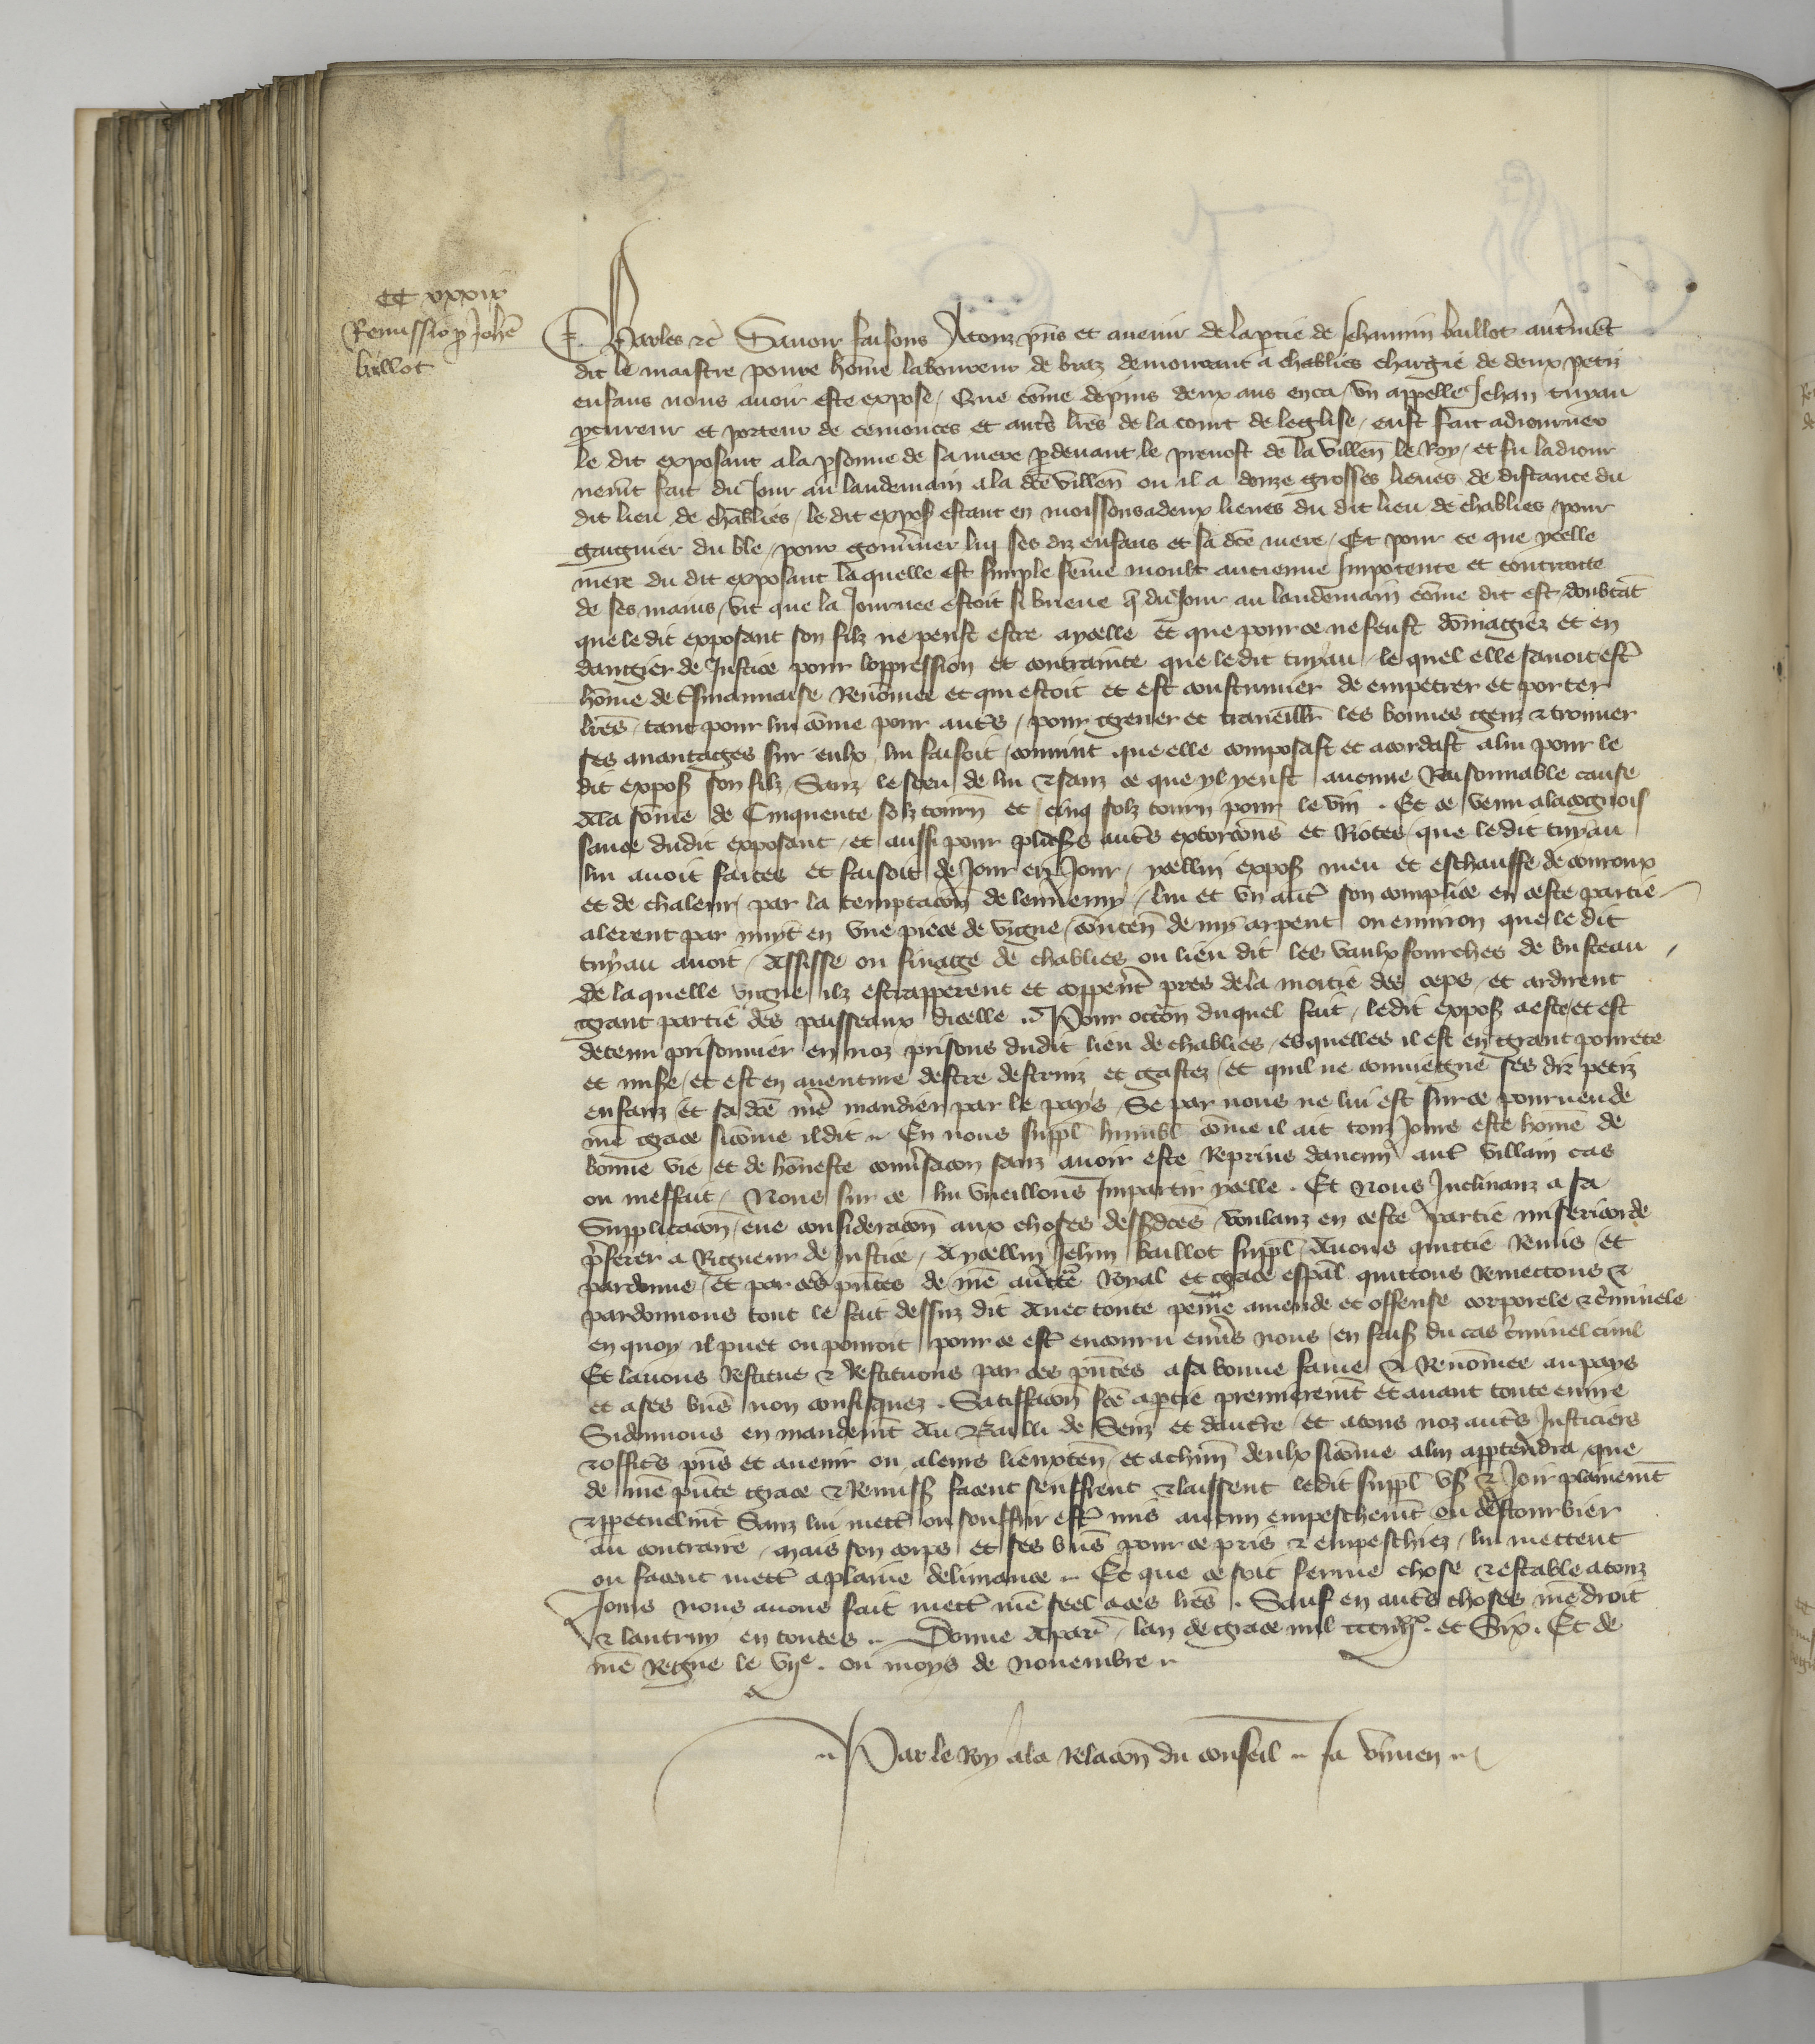 CC xxxix
Remissio p Jehe
billot
Charles etc Savoir faisons A touz pns et avenir de la ptie de Jehannin baillot autrmēt
dit le maistre povre hōme laboureur de braz demourant a chablies chargié de deux petiz
enfans nous avoir esté exposé / Que cōme depuis deux ans enca / un appellé Jehan tuyau
pcureur et porteur de cemonces et autrs lres de la court de leglise / eust fait adiourner
le dit exposant a la psonne de sa mere pdevant le prevost de la villen le Roy / et fu ladiour
nemt fait du Jour au landemain a la dce villen ou il a donze grosses lieues de distance du
dit lieu de chablies / le dit expos estant en moissons a deux lieues du dit lieu de chablies / pour
gaignier du ble / pour gouvner lui ses diz enfans et sa dce mere / Et pour ce que ycelle
mere du dit exposant la quelle est simple fēme moult ancienne Impotente et contraite
de ses mains / vit que la Journee estoit si brieve q̄ du Jour au landemain cōme dit est doubtāt
que le dit exposant son filz ne peust estre a ycelle et que pour ce ne feust dōmagiez et en
dangier de Justice pour loppression et contrainte que le dit tuyau / le quel elle savoit estr
hōme de tsmauvaise Renōmee et qui estoit et est coustumier de empetrer et porter
lres / tant pour lui cōme pour autrs / pour grever et traveillr les bonnes genz & trouver
ses avantages sur eulx / lui faisoit / convint que elle composast et acordast a lui pour le
dit expos son filz / Sanz le sceu de lui & sanz ce que yl yeust aucune Raisonnable cause
A la sōme de Cinquente solz tourn et cinq solz tourn pour le vin . Et ce venu a la cognois
sance dudit exposant / et aussi pour plusrs autrs extorcōns et Riotes / que le dit tuyau
lui avoit faites et faisoit de Jour en Jour / ycellui expos meu et eschauffe de courroux
et de chaleur par la temptacōn de lennemy / lui et un autr son complice en ceste partie
alerent par nuyt en une piece de vigne contenn demy arpent ou environ que le dit
tuyau avoit / Assisse ou finage de chablies ou lieu dit les vaulx fourches de busteau /
de la quelle vigne ilz estrapperent et coppert pres de la moitie des ceps / et ardirent
grant partie des paisseaux dicelle . Pour occōn duquel fait / le dit expos a este et est
detenu prisonnier en noz prisons dudit lieu de chablies / esquelles il est en grant povrete
et mise / et est en aventure destre destruiz et gastez / et quil ne conviegne ses diz petiz
enfanz et sa dce mre mandier par le pays / Se par nous ne lui est sur ce pourveu de
nre grace sicōme il dit .. En nous suppl humbl cōme il ait touz Jours este home de
bonne vie et de hōneste convsacon sanz avoir este Reprins daucun autr villain cas
ou meffait / Nous sur ce lui vueillons Impartir ycelle . Et Nous Inclinanz a sa
Supplicacōn / eue consideracōn aux choses dessusdces / voulanz en ceste partie misericorde
prferer a Rigueur de Justice / A ycellui Jehnn baillot suppl / Avons quittie Remis et
pardonne / Et par ces pntes de nre auctte Royal et grace espal quittons Remettons &
pardonnons tout le fait dessuz dit Avec toute peine amende et offense corporele & crminele
en quoy il puet ou pourroit pour ce estr encouru envrs nous / en faisā du cas crminel civil
Et lavons Restitue & Restituons par ces pntes a sa bonne fame & Renōmee au pays
et a ses bns non confisquez . Satiffacōn fce a ptie premieremt et avant toute euvre
Si donnons en mandemt Au Bailli de Senz et daucrre / et a tous noz autrs Justiciers
& officrs pns et avenir ou a leurs lieuxten / et a chun deulx sicōme a lui apptendra / que
de nre pnte grace & Remiss facent seuffrent & laissent le dit suppl us & Joir plainemt
& ppetuelmt Sanz lui mettr ou souffrir estr mis aucun empeschemt ou destourbier
au contraire / mais son corps et ses bns pour ce pris & empeschiez / lui mettent
ou facent mettr a plaine delivrance .. Et que ce soit ferme chose & estable a touz
Jours nous avons fait mettr nre seel a ces lres . Sauf en autrs choses nre droit
& lautruy en toutes .. Donne A par / lan de grace mil ccc iiiixx . et Six . Et de
nre Regne le viie . ou moys de novembre ..
.. Par le Roy a la relacōn du conseil .. Ja vimen ..